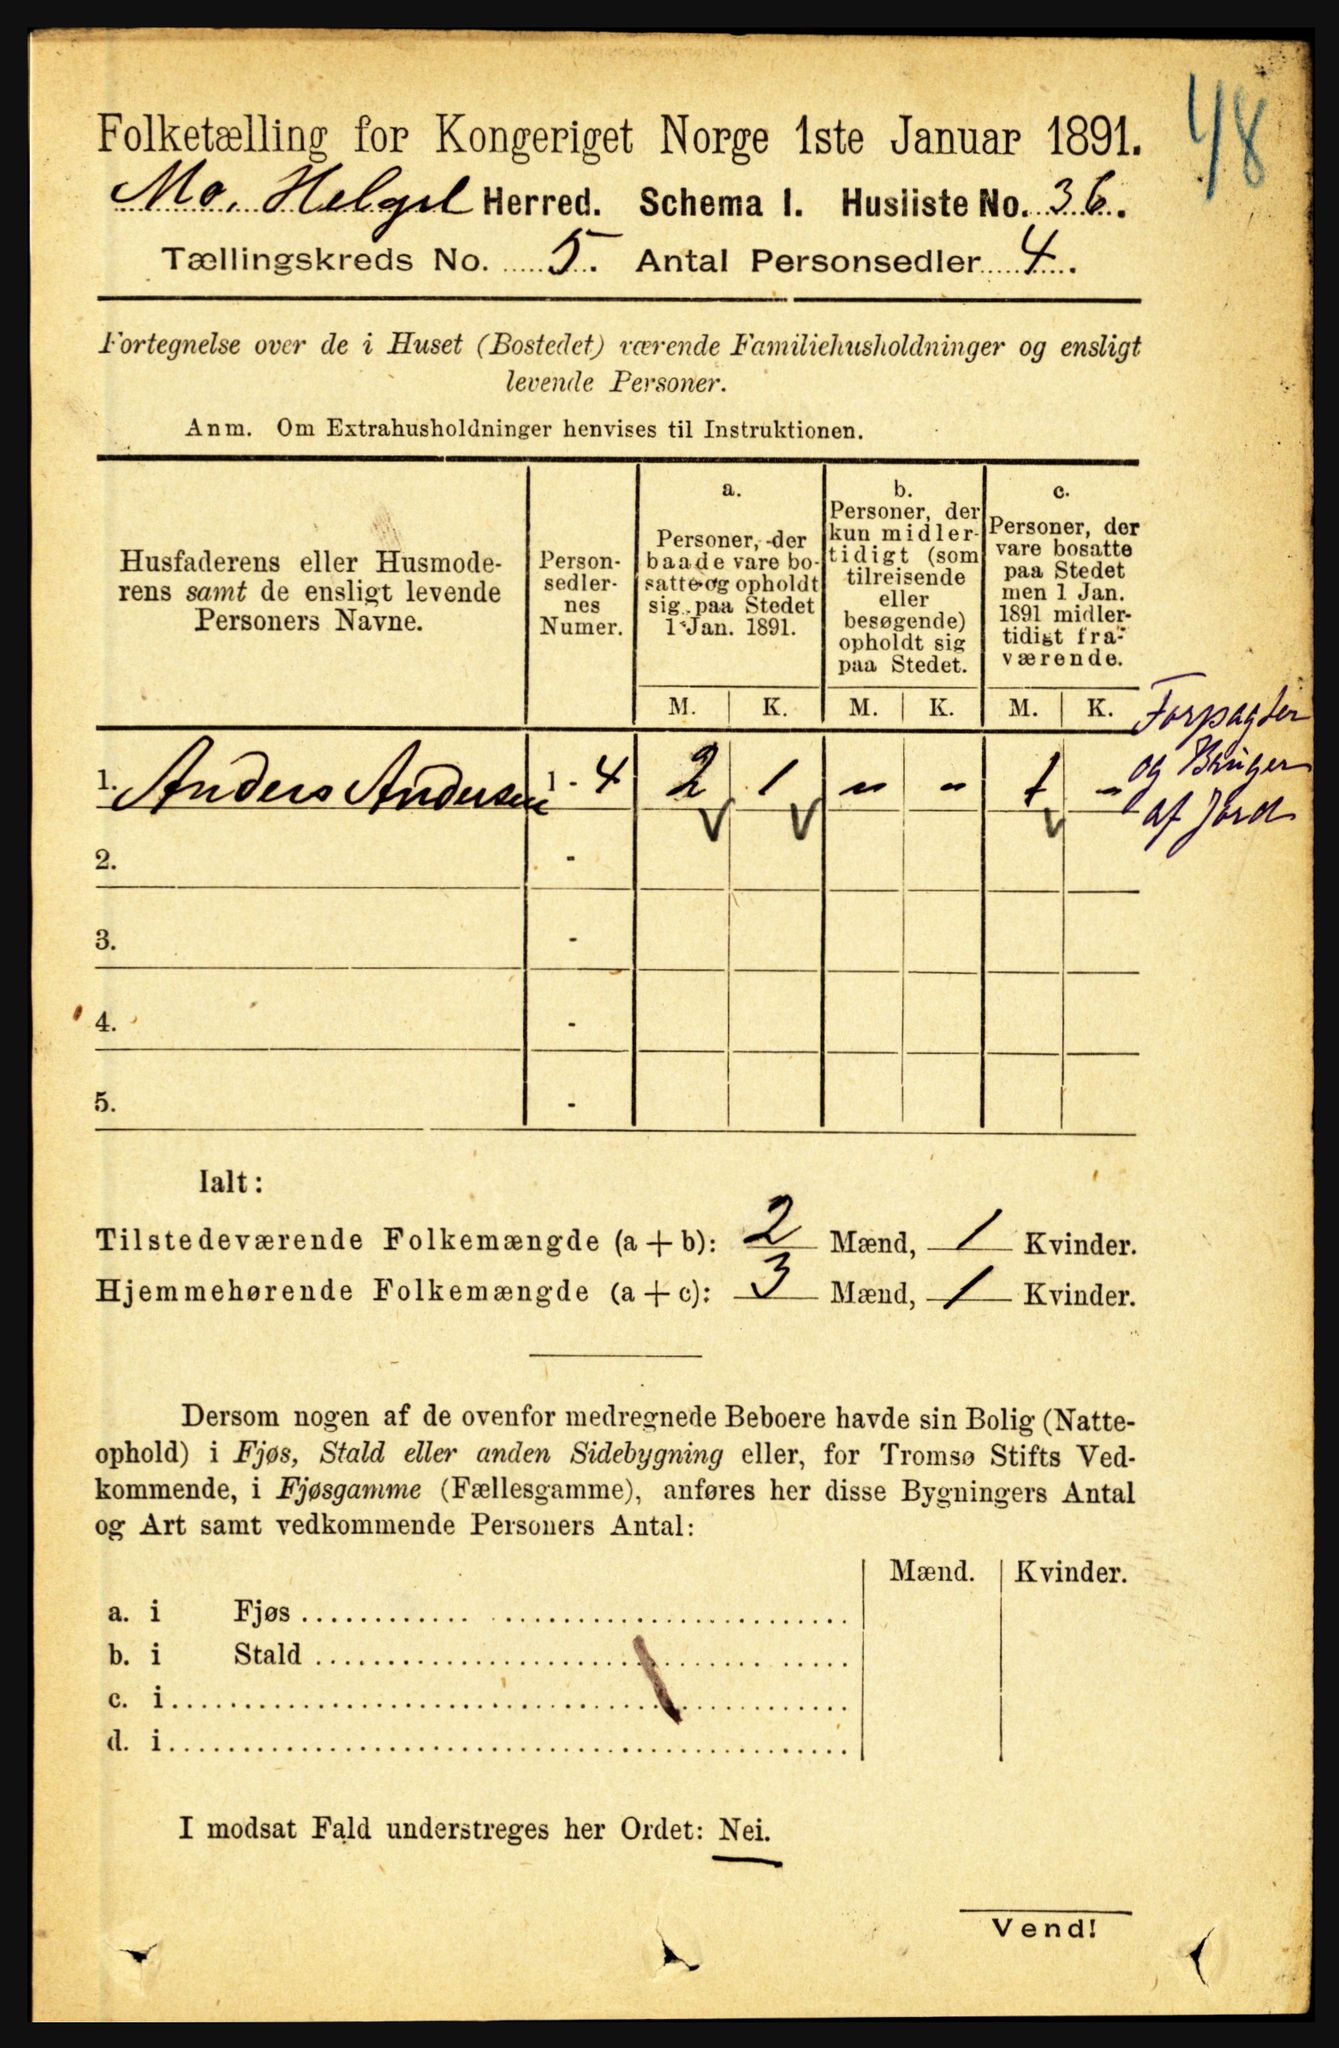 48
Folketælling for Kongeriget Norge 1ste Januar 1891.
Mo, Helgel Herred. Schema I. Husliste No. 36.
Tællingskreds No. 5. Antal Personsedler 4.
Fortegnelse over de i Huset (Bostedet) værende Familiehusholdninger og ensligt
levende Personer.
Anm. Om Extrahusholdninger henvises til Instruktionen.
Husfaderens eller Husmode-
rens samt de ensligt levende
Personers Navne.
Person-
sedler-
nes
Numer.
a.
Personer, der
baade vare bo-
satte og opholdt
sig paa Stedet
1 Jan. 1891.
b.
Personer, der
kun midler-
tidigt (som
tilreisende
eller
besøgende)
opholdt sig
paa Stedet.
c.
Personer, der
vare bosatte
paa Stedet
men 1 Jan.
1891 midler-
tidigt fra-
værende.
M. K. M. K. M. K.
Forpagter
og Bruger
af Jord
1. Anders Andersen 1 - 4 2 1 " " 1 "
2. -
3. -
4. -
5. -
Ialt:
Tilstedeværende Folkemængde (a + b): 2 Mænd, 1 Kvinder.
Hjemmehørende Folkemængde (a + c): 3 Mænd, 1 Kvinder.
Dersom nogen af de ovenfor medregnede Beboere havde sin Bolig (Natte-
ophold) i Fjøs, Stald eller anden Sidebygning eller, for Tromsø Stifts Ved-
kommende, i Fjøsgamme (Fællesgamme), anføres her disse Bygningers Antal
og Art samt vedkommende Personers Antal:
Mænd. Kvinder.
a. i Fjøs
b. i Stald
c. i
d. i
I modsat Fald understreges her Ordet: Nei.
Vend!